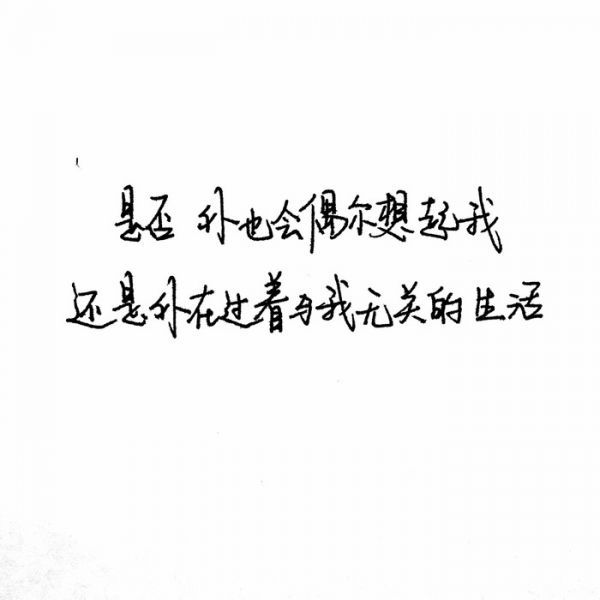 是否 你也会偶尔想起我
还是你在过着与我无关的生活